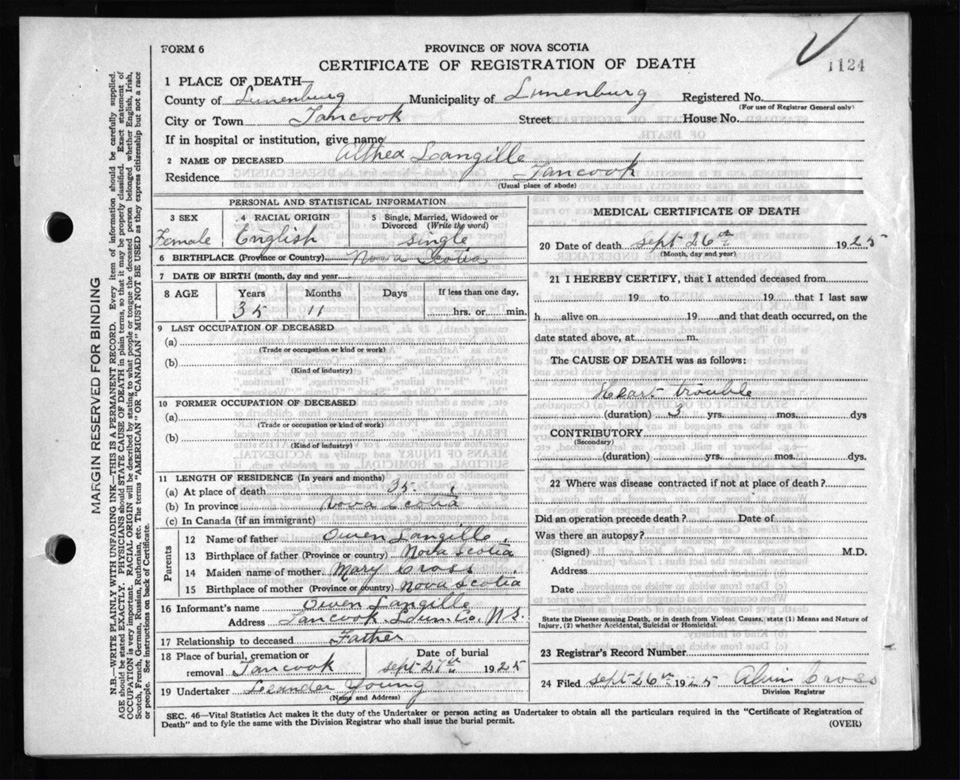 FORM 6
PROVINCE OF NOVA SCOTIA
CERTIFICATE OF REGISTRATION OF DEATH
1124
1 PLACE OF DEATH—
County of Lunenburg Municipality of Lunenburg Registered No.
(For use of Registrar General only)
City or Town Tancook Street House No.
If in hospital or institution, give name
2 NAME OF DECEASED Althea Langille
Residence Tancook
(Usual place of abode)
PERSONAL AND STATISTICAL INFORMATION
3 SEX 4 RACIAL ORIGIN 5 Single, Married, Widowed or Divorced (Write the word)
Female English single
6 BIRTHPLACE (Province or Country) Nova Scotia
7 DATE OF BIRTH (month, day and year)
8 AGE Years Months Days If less than one day,
35 11 hrs. or min.
9 LAST OCCUPATION OF DECEASED
(a)
(Trade or occupation or kind or work)
(b)
(Kind of industry)
10 FORMER OCCUPATION OF DECEASED
(a)
(Trade or occupation or kind of work)
(b)
(Kind of industry)
11 LENGTH OF RESIDENCE (In years and months)
(a) At place of death 35
(b) In province Nova Scotia
(c) In Canada (if an immigrant)
Parents
12 Name of father Owen Langille
13 Birthplace of father (Province or country) Nova Scotia
14 Maiden name of mother Mary Cross
15 Birthplace of mother (Province or country) Nova Scotia
16 Informant's name Owen Langille
Address Tancook Lun. Co. N.S.
17 Relationship to deceased Father
18 Place of burial, cremation or removal Tancook Date of burial Sept 27th 1925
19 Undertaker Leander Young
(Name and Address)
MEDICAL CERTIFICATE OF DEATH
20 Date of death Sept 26th 1925
(Month, day and year)
21 I HEREBY CERTIFY, that I attended deceased from
19 to 19 that I last saw
h alive on 19 and that death occurred, on the
date stated above, at m.
The CAUSE OF DEATH was as follows:
Heart trouble
(duration) 3 yrs. mos. dys
CONTRIBUTORY
(Secondary)
(duration) yrs. mos. dys.
22 Where was disease contracted if not at place of death?
Did an operation precede death? Date of
Was there an autopsy?
(Signed) M.D.
Address
Date
State the Disease causing Death, or in death from Violent Causes, state (1) Means and Nature of
Injury, (2) whether Accidental, Suicidal or Homicidal.
23 Registrar's Record Number
24 Filed Sept 26th 1925 Alvin Cross
Division Registrar
SEC. 46—Vital Statistics Act makes it the duty of the Undertaker or person acting as Undertaker to obtain all the particulars required in the "Certificate of Registration of
Death" and to fyle the same with the Division Registrar who shall issue the burial permit.
(OVER)
MARGIN RESERVED FOR BINDING
N.B.—WRITE PLAINLY WITH UNFADING INK—THIS IS A PERMANENT RECORD. Every item of information should be carefully supplied.
AGE should be stated EXACTLY. PHYSICIANS should STATE CAUSE OF DEATH in plain terms, so that it may be properly classified. Exact statement of
OCCUPATION is very important. RACIAL ORIGIN will be described by stating to what people or tongue the deceased person belonged whether English, Irish,
Scotch, French, German, Russian, Ruthenian, etc. The terms "AMERICAN" OR "CANADIAN" MUST NOT BE USED as they express citizenship but not a race
or people. See instructions on back of Certificate.